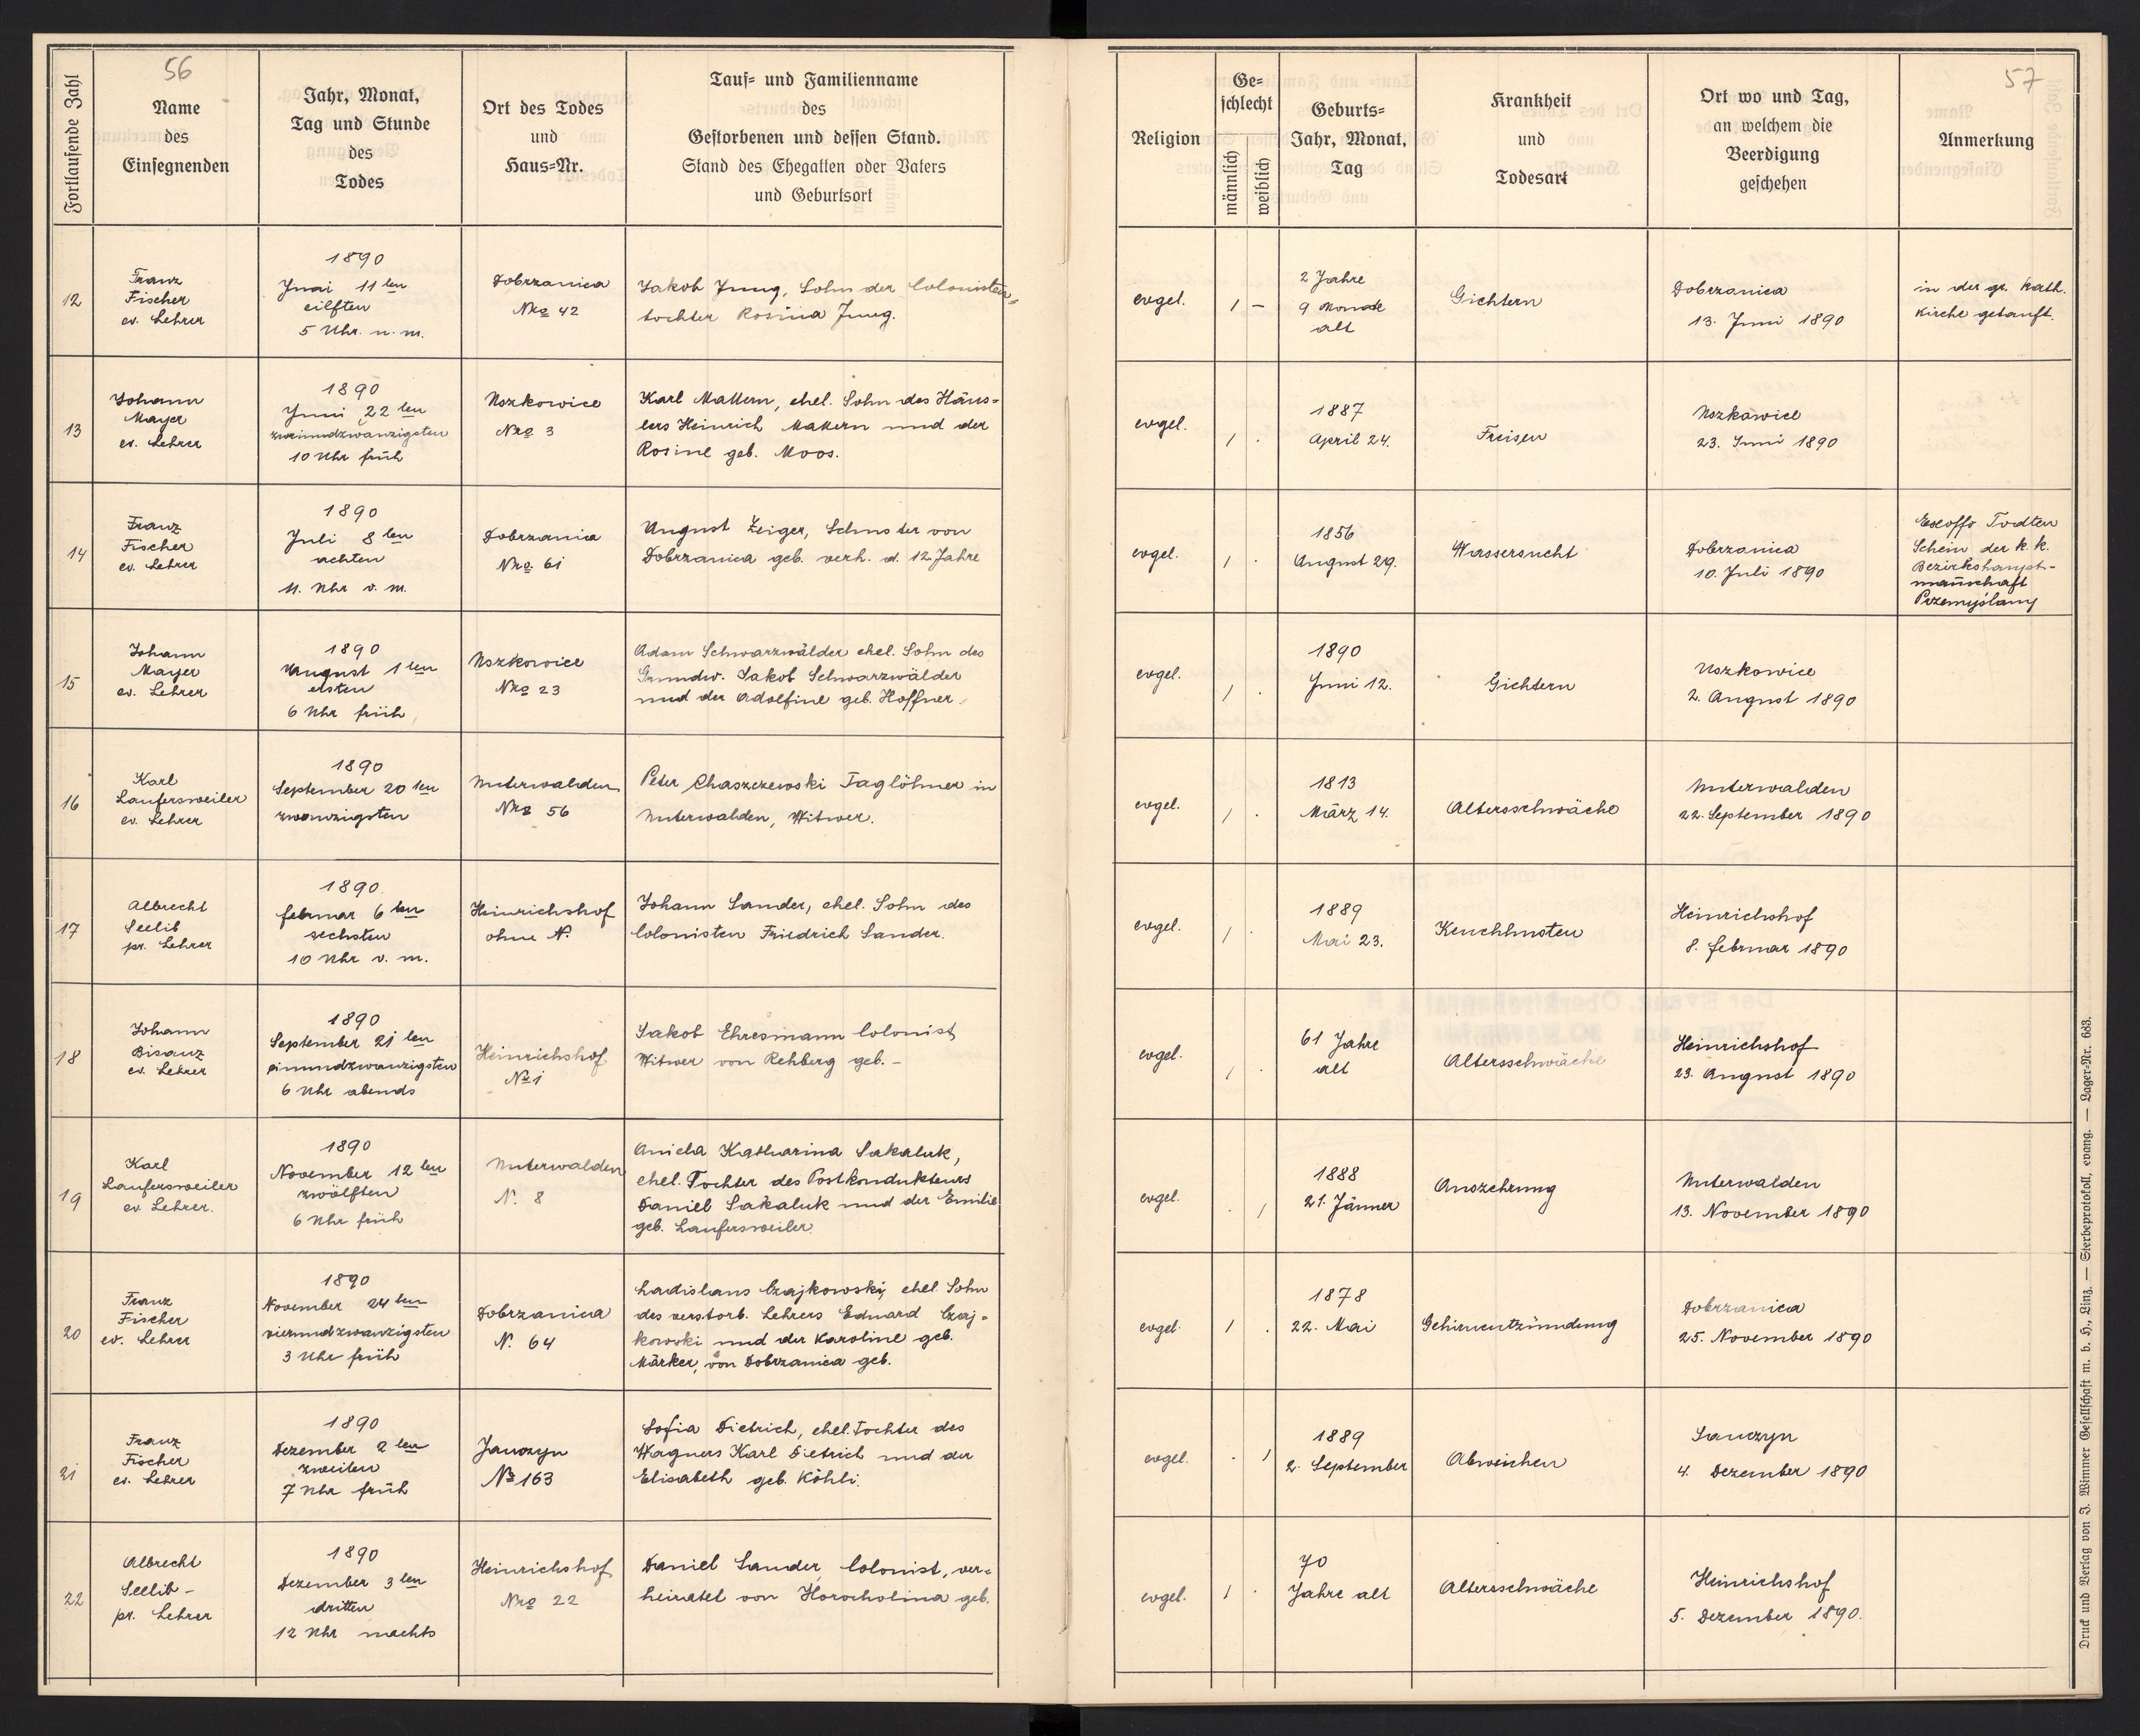 56
Fortlaufende Zahl
Name
des
Einsegnenden
Jahr, Monat,
Tag und Stunde
des
Todes
Ort des Todes
und
Haus=Nr.
Tauf= und Familienname
des
Gestorbenen und dessen Stand.
Stand des Ehegatten oder Vaters
und Geburtsort
57
Religion
Ge=
schlecht
männlich
weiblich
Geburts=
Jahr, Monat,
Tag
Krankheit
und
Todesart
Ort wo und Tag,
an welchem die
Beerdigung
geschehen
Anmerkung
12
Franz
Fischer
ev. Lehrer
1890
Juni 11 ten
eilften
5 Uhr. n. m.
Dobrzanica
Nro 42
Jakob Jung, Sohn der Colonisten=
tochter Rosina Jung.
evgel.
1 –
2 Jahre
9 Monate
alt
Gichtern
Dobrzanica
13. Juni 1890
in der gr. kath.
Kirche getauft.
13
Johann
Mayer
ev. Lehrer
1890
Juni 22 ten
zweiundzwanzigsten
10 Uhr früh
Uszkowice
Nro 3
Karl Mattern, ehel. Sohn des Häus=
lers Heinrich Mattern und der
Rosine geb. Moos.
evgel.
1 .
1887
April 24.
Freisen
Uszkowice
23. Juni 1890
14
Franz
Fischer
ev. Lehrer
1890
Juli 8 ten
achten
11. Uhr v. m.
Dobrzanica
Nro. 61
August Zeiger, Schuster von
Dobrzanica geb. verh. d. 12 Jahre
evgel.
1 .
1856
August 29.
Wassersucht
Dobrzanica
10. Juli 1890
Exoffo Todten
Schein der k. k.
Bezirkshaupt-
mannschaft
Przemyślany
15
Johann
Mayer
ev. Lehrer
1890
August 1 ten
ersten
6 Uhr früh
Uszkowice
Nro 23
Adam Schwarzwälder ehel. Sohn des
Grundw. Jakob Schwarzwälder
und der Adolfine geb. Hoffner.
evgel.
1 .
1890
Juni 12.
Gichtern
Uszkowice
2. August 1890
16
Karl
Laufersweiler
ev. Lehrer
1890
September 20 ten
zwanzigsten
Unterwalden
Nro 56
Peter Chaszczewski Taglöhner in
Unterwalden, Witwer.
evgel.
1 .
1813
März 14.
Altersschwäche
Unterwalden
22. September 1890
17
Albrecht
Seelib
pr. Lehrer
1890.
Februar 6 ten
sechsten
10 Uhr v. m.
Heinrichshof
ohne N.
Johann Sander, ehel. Sohn des
Colonisten Friedrich Sander.
evgel.
1 .
1889
Mai 23.
Keuchhusten
Heinrichshof
8. Februar 1890
18
Johann
Bisanz
ev. Lehrer
1890
September 21 ten
einundzwanzigsten
6 Uhr abends
Heinrichshof
No 1
Jakob Ehresmann Colonist,
Witwer von Rehberg geb. –
evgel.
1 .
61 Jahre
alt
Altersschwäche
Heinrichshof
23. August 1890
19
Karl
Laufersweiler
ev. Lehrer.
1890
November 12 ten
zwölften
6 Uhr früh
Unterwalden
N. 8
Aniela Katharina Sakaluk,
ehel. Tochter des Postkondukteurs
Daniel Sakaluk und der Emilie
geb. Laufersweiler.
evgel.
. 1
1888
21. Jänner
Auszehrung
Unterwalden
13. November 1890
20
Franz
Fischer
ev. Lehrer
1890
November 24 ten
vierundzwanzigsten
3 Uhr früh
Dobrzanica
N. 64
Ladislaus Czajkowski, ehel. Sohn
des verstorb. Lehrers Eduard Czaj=
kowski und der Karoline geb.
Märker, von Dobrzanica geb.
evgel.
1 .
1878
22. Mai
Gehirnentzündung
Dobrzanica
25. November 1890
21
Franz
Fischer
ev. Lehrer
1890
Dezember 2 ten
zweiten
7 Uhr früh
Janczyn
No 163
Sofia Dietrich, ehel. Tochter des
Wagners Karl Dietrich und der
Elisabeth geb. Köhli.
evgel.
. 1
1889
2. September
Abweichen
Janczyn
4. Dezember 1890
22
Albrecht
Seelib –
pr. Lehrer
1890
Dezember 3 ten
dritten
12 Uhr nachts
Heinrichshof
Nro 22
Daniel Sander, Colonist, ver=
heiratet von Horocholina geb.
evgel.
1 .
70
Jahre alt
Altersschwäche
Heinrichshof
5. Dezember 1890.
Druck und Verlag von J. Wimmer Gesellschaft m. b. H., Linz. — Sterbeprotokoll, evang. — Lager=Nr. 683.